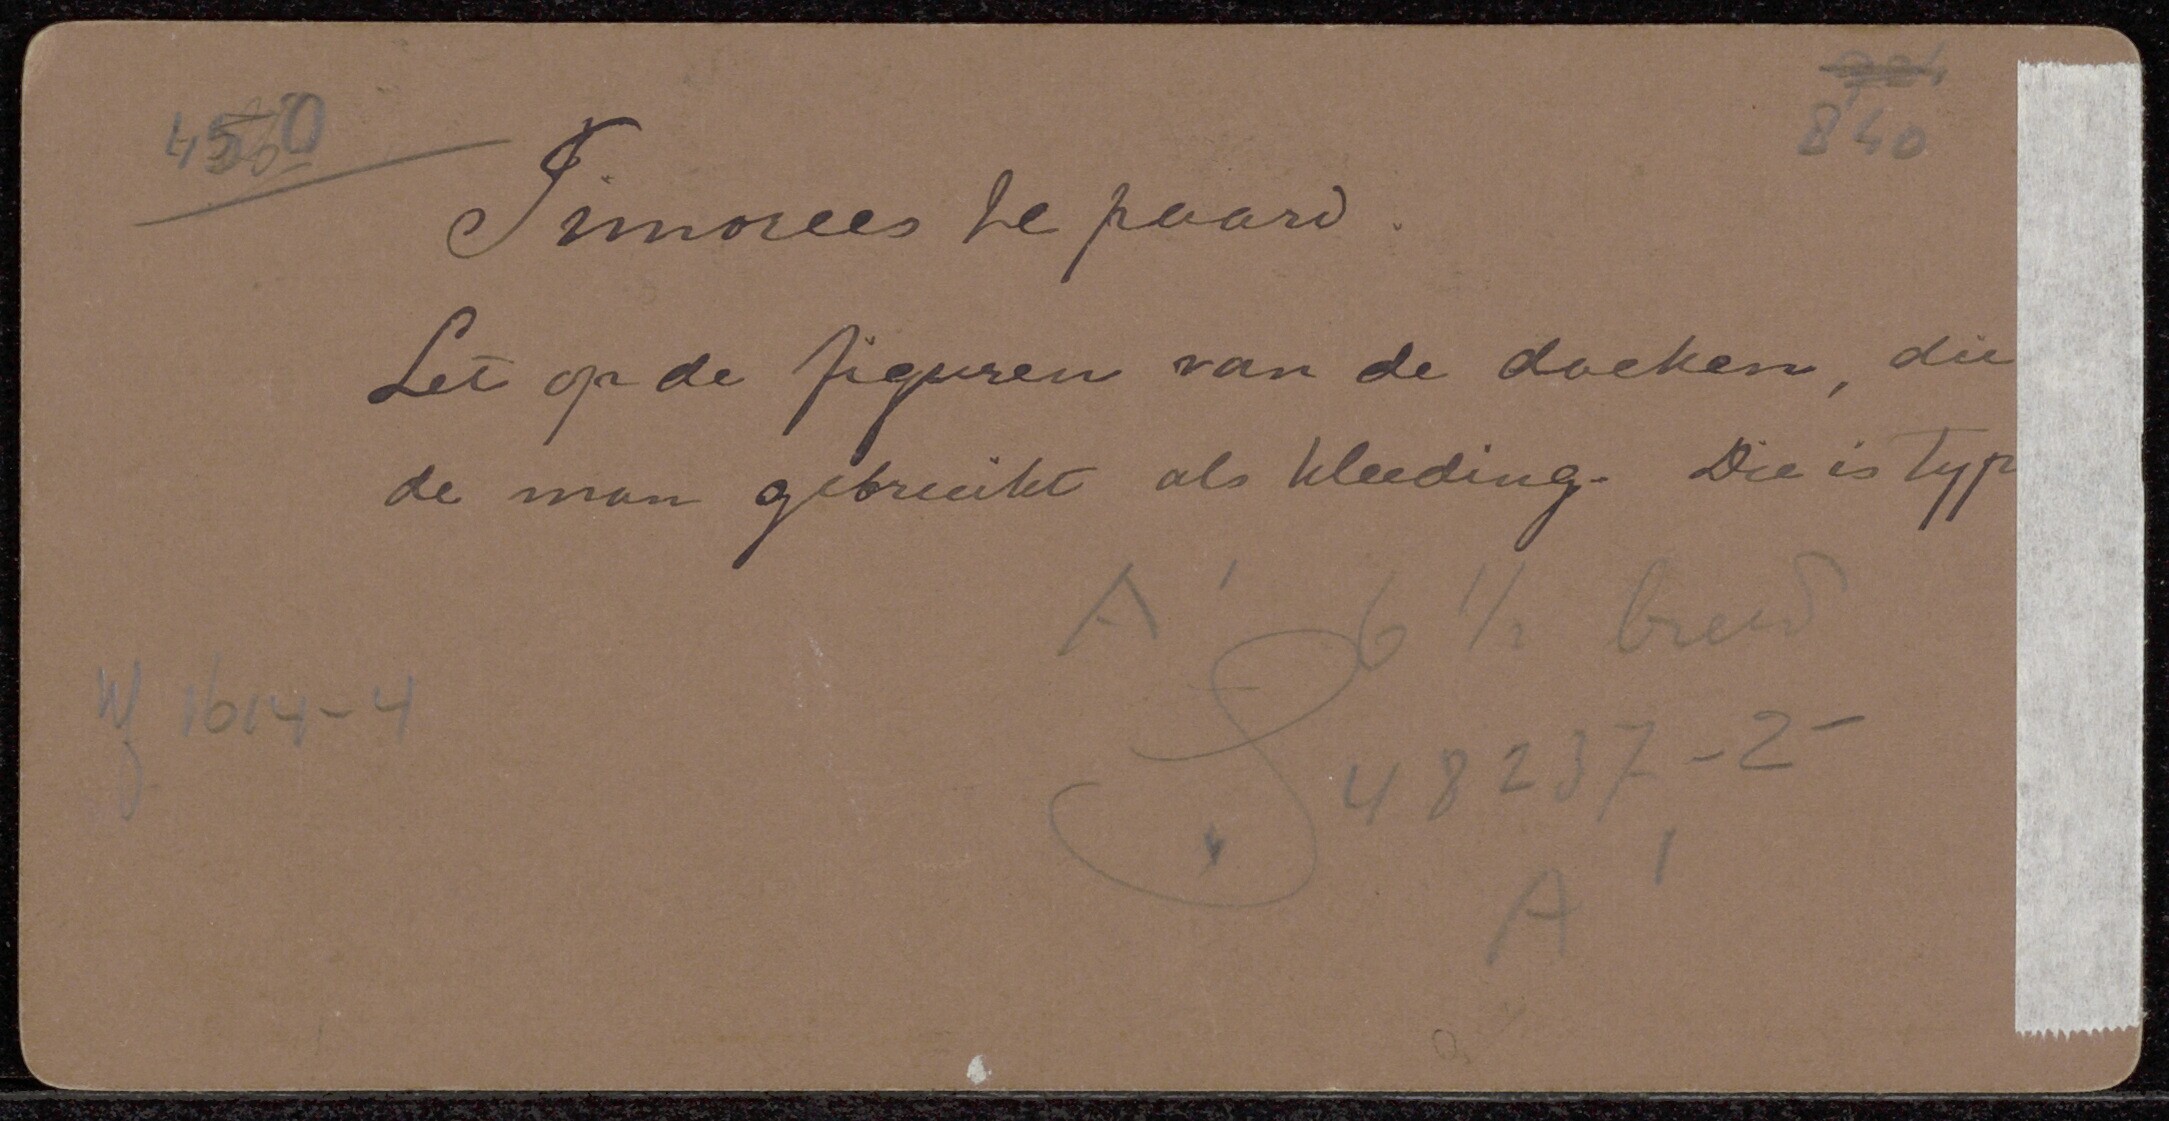 840
Timorees te paard.
Let op de figuren van de doeken, die
de man gebruikt als kleeding. Die is typ
A' 6 1/2 breed
W 1614-4
48237-2-
A'